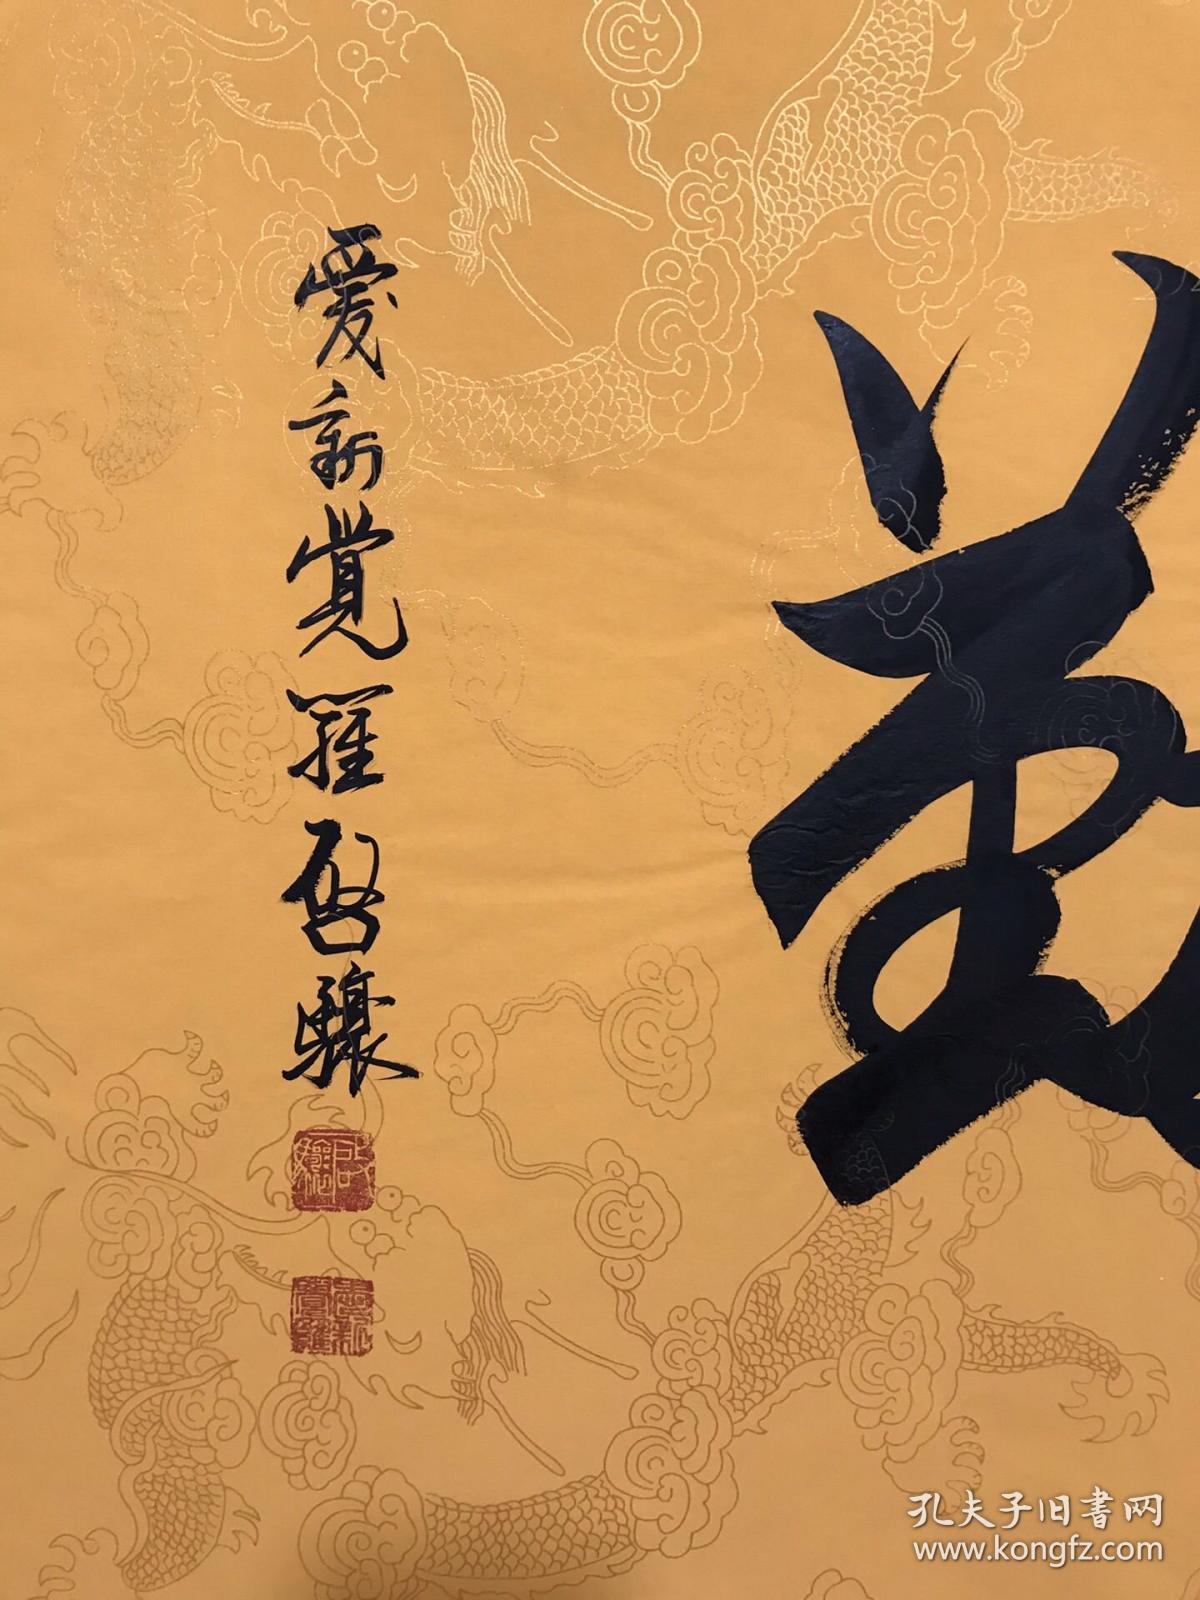 愛新覺羅啓驤
啟驤
愛新覺羅
孔夫子旧書网
www.kongfz.com